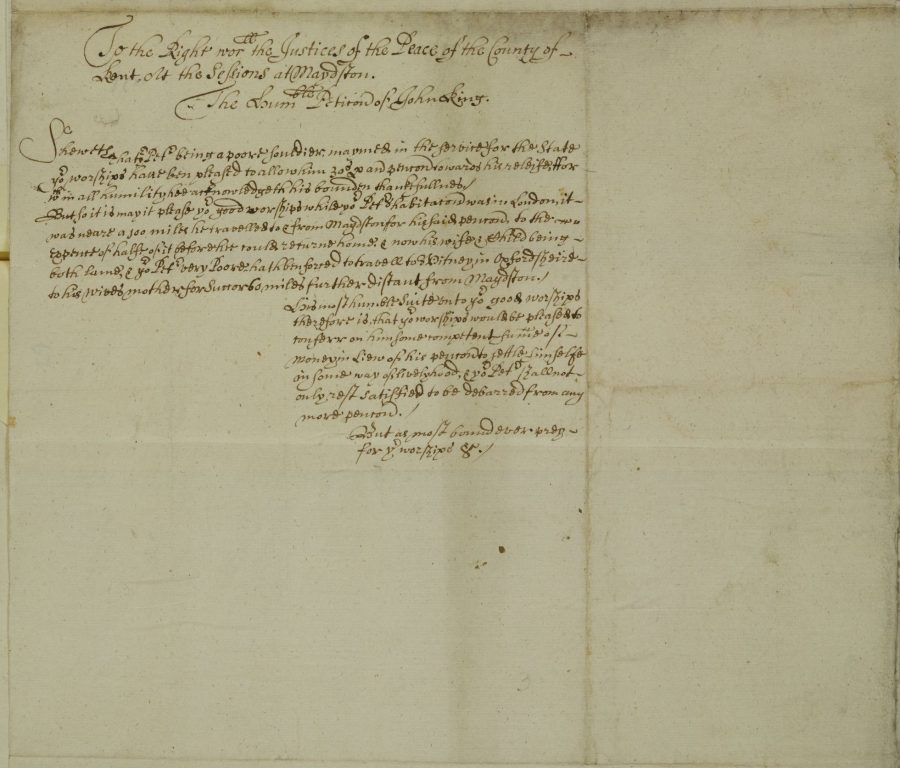 To the Right wor.ll the Justices of the Peace of the County of
Kent, At the Sessions at Maydston.
The Hum.ble Peticon of John King.
Sheweth
That yo.r Pet.r being a poore souldier, maymed in the service for the State
yo.r worships have ben pleased to allow him pencon towards his releife, ffor
w.ch in all humility hee acknowledgeth his bounden thankfullnes /
But so it is may it please yo.r good worships while yo.r Pet.rs habitacon was in London it
was neare a 100 miles he travelled to & from Maydston for his said pencon, to the
expence of halfe of it before hee could returne home, & now his wife & Child being
both lame, & yo.r Pet.r very Poore hath ben forced to travell to Witney in Oxfordsheire
to his wives mother for succor 60 miles further distant from Maydston /
His most humble suite unto yo.r good worships
therefore is, that yo.r worships would be pleased to
conferr on him some competent sum̃e of
money in Liew of his pencon to settle himselfe
in some way of livelyhood, & yo.r Pet.r shall not
only rest satisfied to be debarred from any
more pencon /
But as most bound ever pray
for yo.r worships &c /